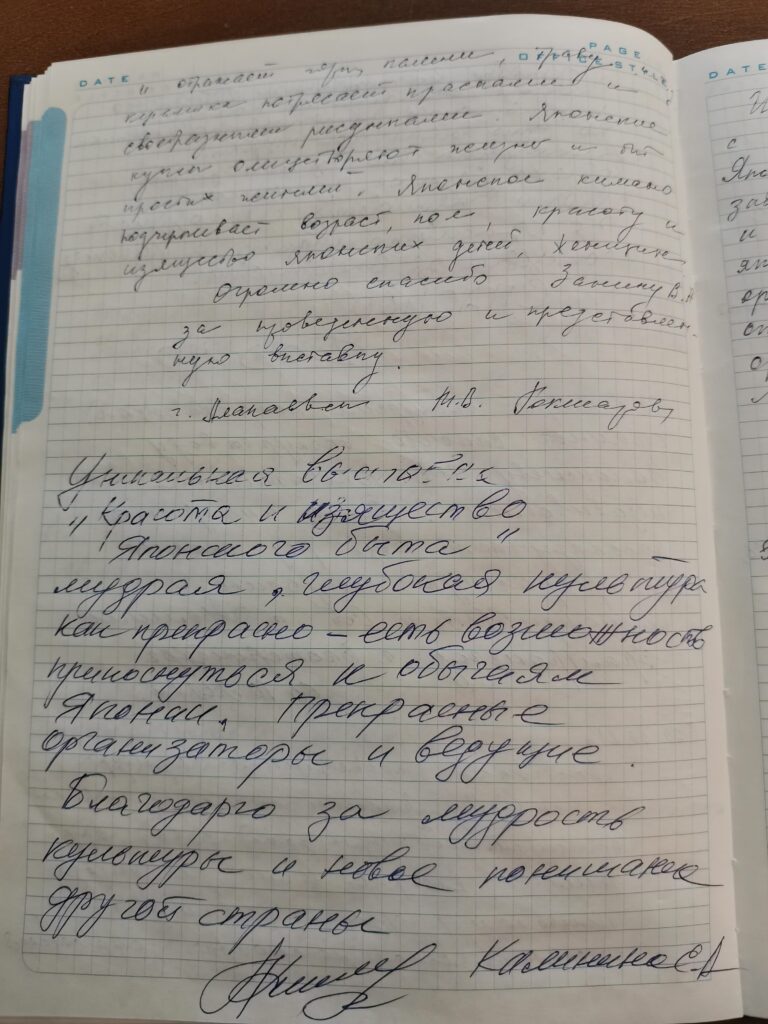 DATE
PAGE
OFFICE STYLE
DATE
" отражает через камени, траву
керамика потрясает красками и
своеобразными рисунками. Японские
куклы олицетворяют жизнь и быт
простых жителей. Японское кимано
подчеркивает возраст, пол, красоту и
изящество японских детей, женщин
Огромно спасибо Занину В.А
за проведенную и представлен-
ную виставку.
г. Алапаевск М.В.
Уникальная выставка
"Красота и изящество
Японского быта"
мудрая, глубокая культура
как прекрасно – есть возможность
прикоснуться к обычаям
Японии. Прекрасные
организаторы и ведущие.
Благодарю за мудрость
культуры и новое понимание
другой страны
Калинина С.А